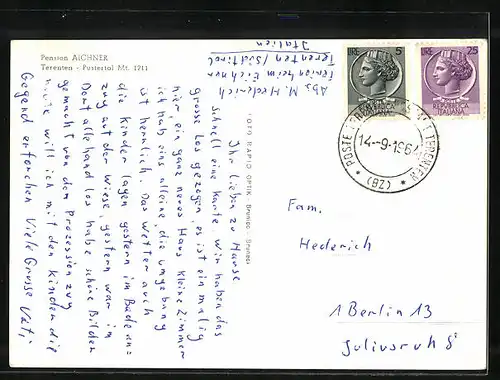 Pension AICHNER
Terenten - Pustertal Mt. 1211
Abs. M. Hederich
Pension heim Eichner
Terenten / Südtirol
Italien
Ihr Lieben zu Hause
schnell eine Karte. Wir haben das
grosse Los gezogen, es ist einmalig
hier, ein ganz neues Haus kleine Zimmer
ich hab eins alleine, die Umgebung
ist herrlich. Das Wetter auch
die Kinder lagen gestern im Badean=
zug auf der Wiese, gestern war im
Dorf allerhand los habe schöne Bilder
gemacht von dem Prozession zug
heute will ich mit den Kindern die
Gegend erforschen Viele Grüsse Vati
FOTO RAPID OPTIK, Bruneck - Brunico
LIRE 5
REPUBBLICA ITALIANA
LIRE 25
REPUBBLICA ITALIANA
POSTE TERENTO
TERENTEN
14-9-196
(BZ)
Fam.
Hederich
1 Berlin 13
Juliusruh 8